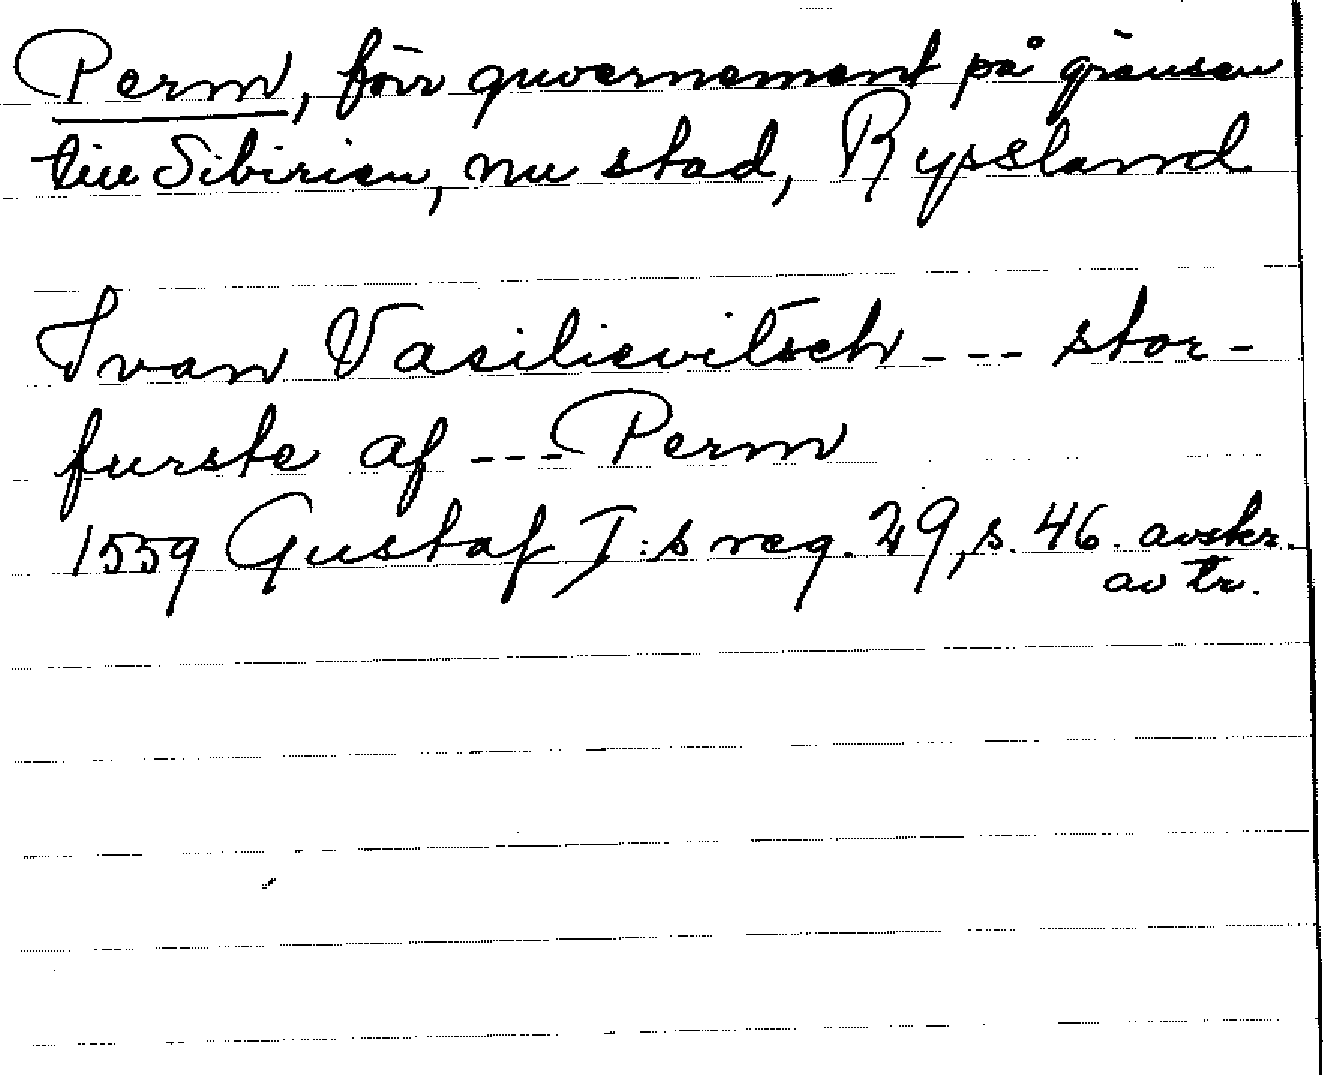 Perm, förr guvernement på gränsen
till Sibirien, nu stad, Ryssland
Ivan Vasilievitsch --- stor-
furste af --- Perm
1559 Gustaf I:s reg. 29, s. 46. avskr.
av tr.